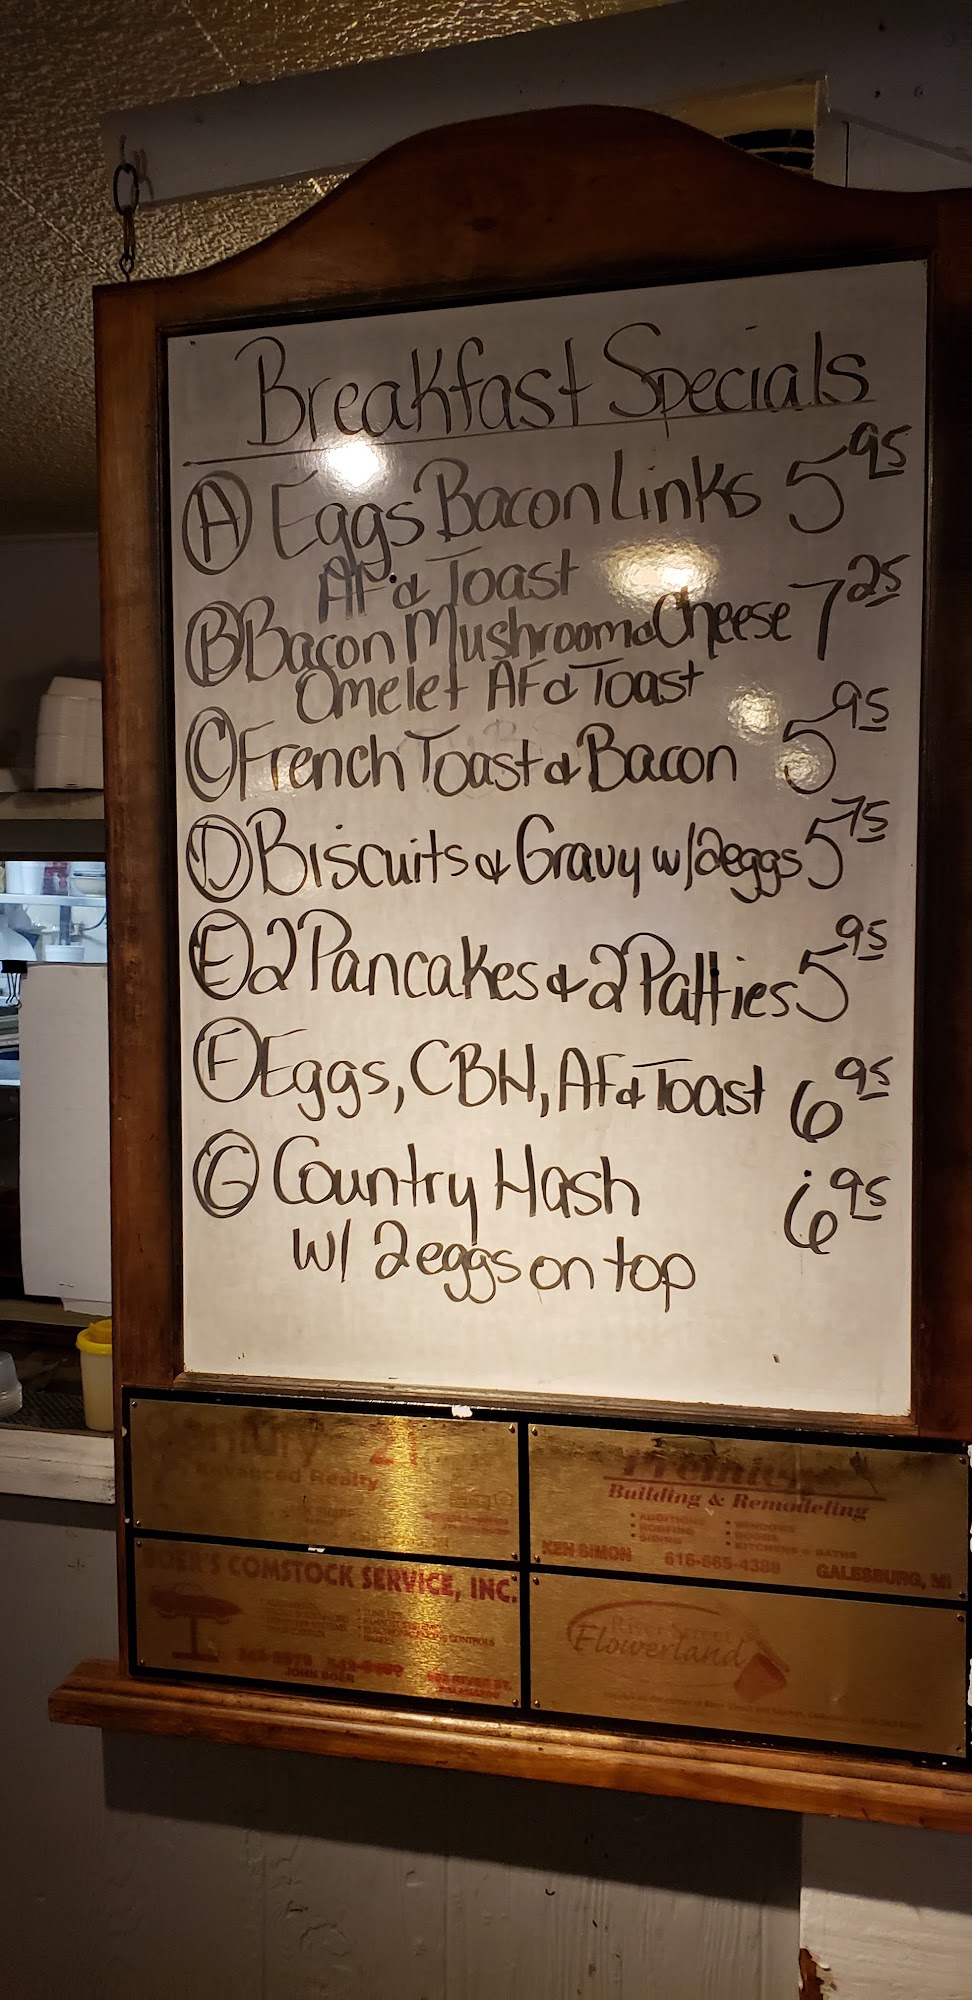 Breakfast Specials
A Eggs Bacon Links 5 95
AF & Toast
B Bacon Mushroom & Cheese 7 25
Omelet AF & Toast
C French Toast & Bacon 5 95
D Biscuits & Gravy w/2eggs 5 75
E 2 Pancakes & 2 Patties 5 95
F Eggs, CBH, AF & Toast 6 95
G Country Hash 6 95
W/ 2 eggs on top
21
Advanced Realty
Building & Remodeling
• ADDITIONS
• ROOFING
• SIDING
• WINDOWS
• DOORS
• KITCHENS & BATHS
KEN SIMON 616-665-4388 GALESBURG, MI
COMSTOCK SERVICE, INC.
JOHN BOER
River Street
Flowerland